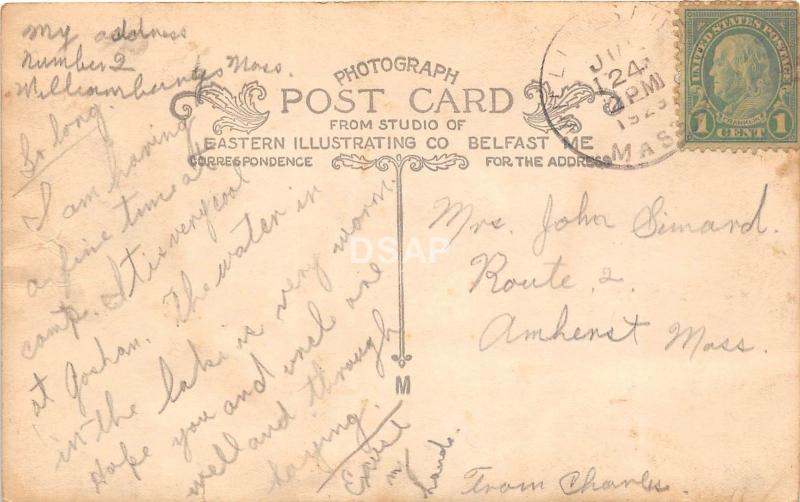 My address
Number 2
Williamsburg Mass.
So long.
PHOTOGRAPH
POST CARD
FROM STUDIO OF
EASTERN ILLUSTRATING CO BELFAST ME
CORRESPONDENCE
FOR THE ADDRESS
24
PM
1929
MASS
UNITED STATES POSTAGE
FRANKLIN
1 CENT 1
I am having
a fine time at
camp. It is very cool
at Goshan. The water in
in the lake is very worm.
Hope you and uncle are
well and through
haying.
Excuse
my
hand.
Mrs. John Simard.
Route 2.
Amherst Mass.
From Charles
M
DSAP